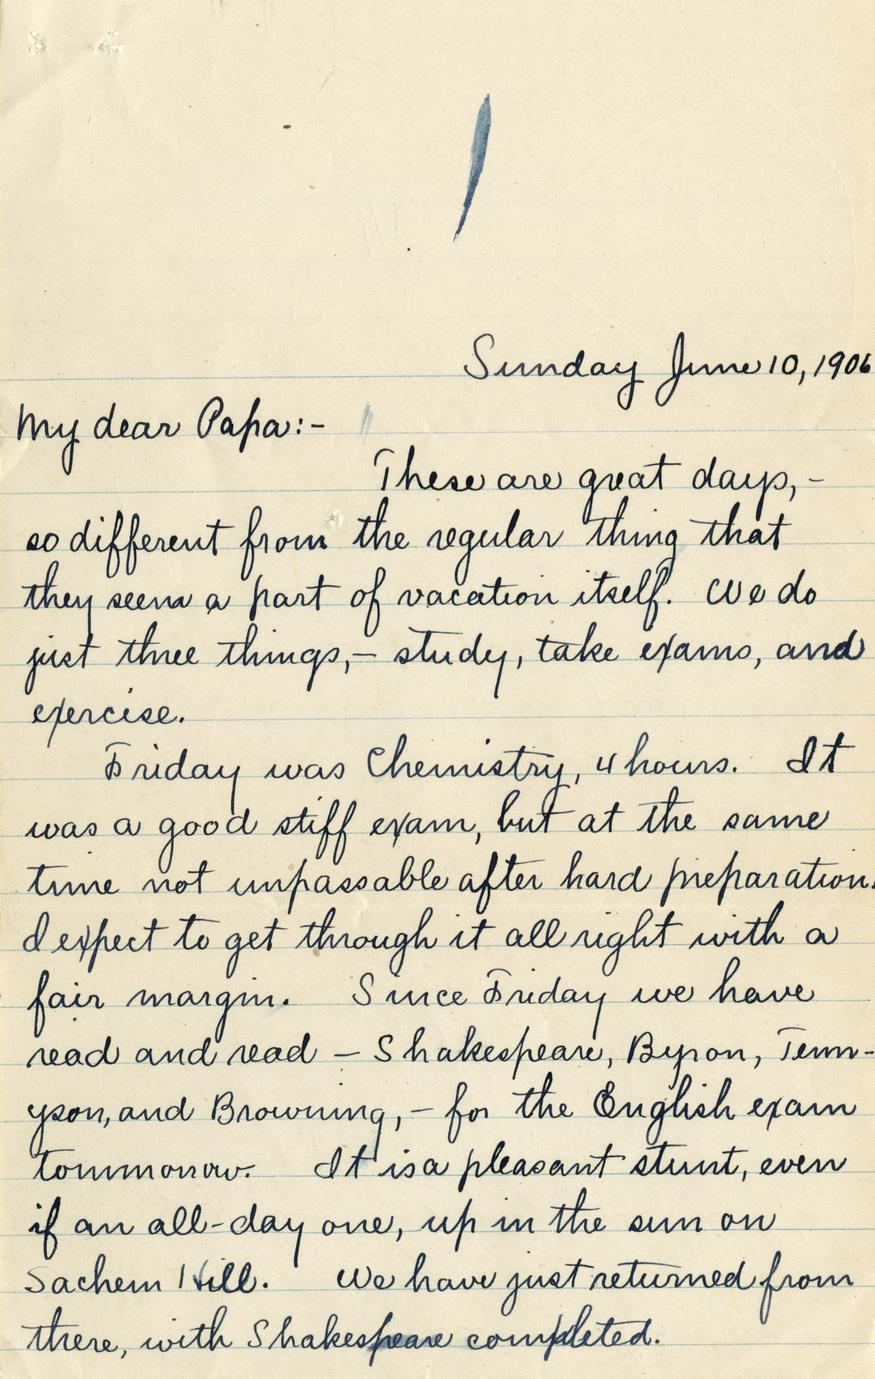 Sunday June 10, 1906
My dear Papa:-
These are great days,-
so different from the regular thing that
they seem a part of vacation itself. We do
just three things,- study, take exams, and
exercise.
Friday was Chemistry, 4 hours. It
was a good stiff exam, but at the same
time not unpassable after hard preparation.
I expect to get through it all right with a
fair margin. Since Friday we have
read and read - Shakespeare, Byron, Tenn-
yson, and Browning, - for the English exam
tommorrow. It is a pleasant stunt, even
if an all-day one, up in the sun on
Sachem Hill. We have just returned from
there, with Shakespeare completed.